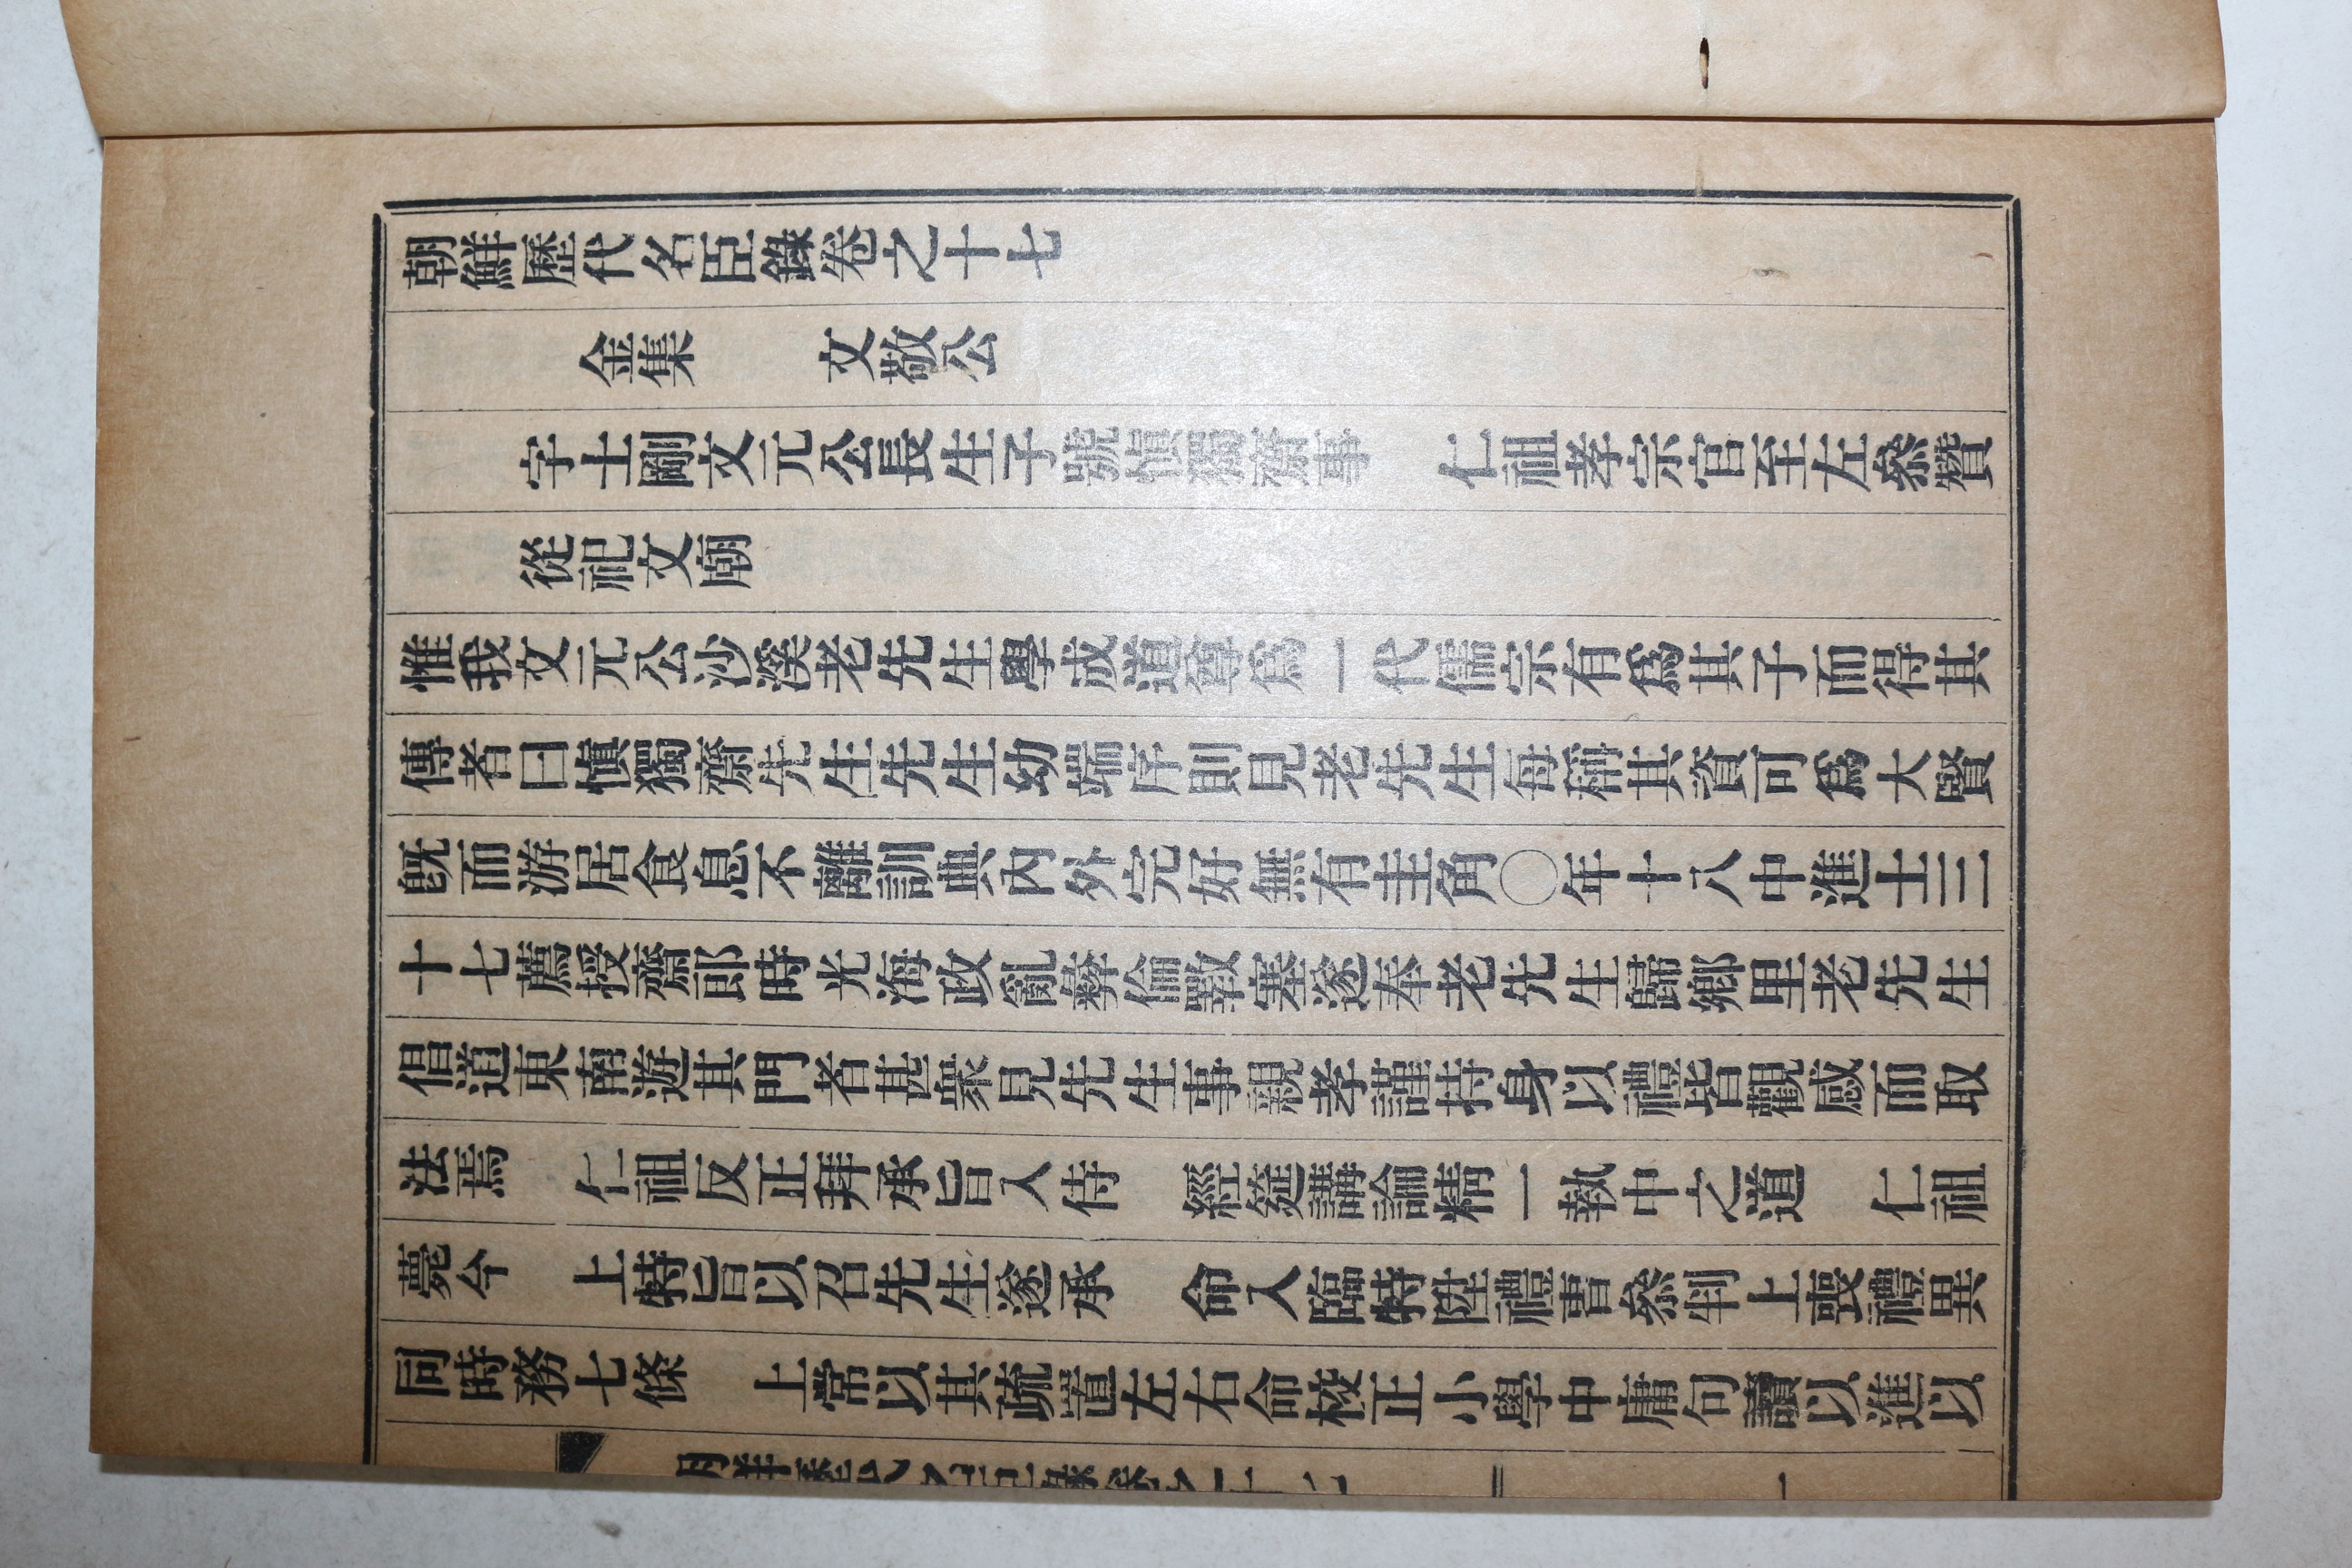 朝鮮歷代名臣錄卷之十七
金集　文敬公
字士剛文元公長生子號愼獨齋事　仁祖孝宗官至左參贊
從祀文廟
惟我文元公沙溪老先生學成道尊爲一代儒宗有爲其子而得其
傳者曰愼獨齋先生先生幼端序則見老先生每稱其資可爲大賢
旣而游居食息不離訓典內外完好無有圭角○年十八中進士三
十七薦授齋郞時光海政亂彝倫斁塞遂奉老先生歸鄕里老先生
倡道東南遊其門者甚衆見先生事親孝謹持身以禮皆觀感而取
法焉　仁祖反正拜承旨入侍　經筵講論精一執中之道　仁祖
薨今　上特旨以召先生遂承　命入臨特陞禮曹參判上喪禮異
同時務七條　上常以其疏置左右命校正小學中庸句讀以進以
朝鮮歷代名臣錄卷之十七　一